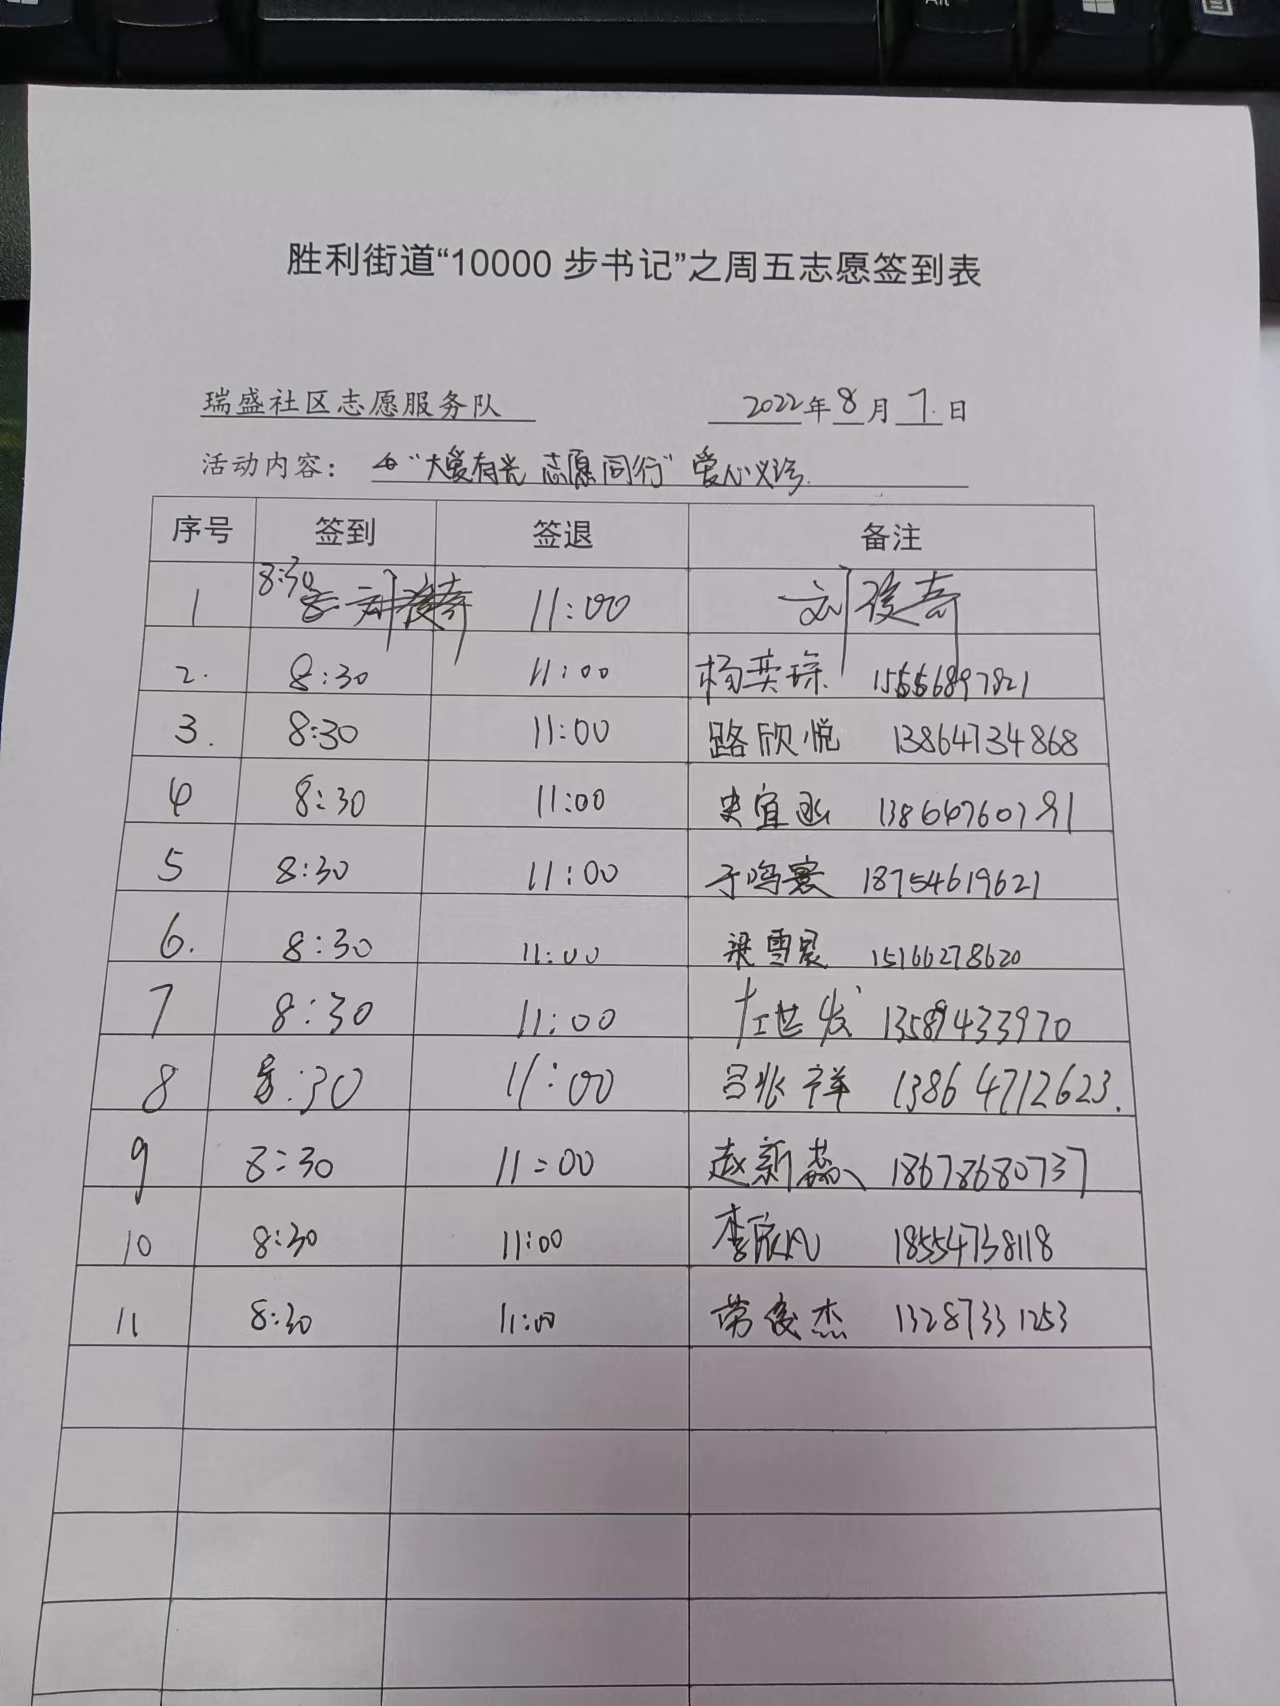 胜利街道“10000 步书记”之周五志愿签到表
瑞盛社区志愿服务队 2022年8月7日
活动内容： “大爱有光 志愿同行”爱心义诊
序号 签到 签退 备注
1 8:30 11:00 刘俊奇
2. 8:30 11:00 杨奕琮 15556897821
3. 8:30 11:00 路欣悦 13864734868
4 8:30 11:00 史宜 13864760791
5 8:30 11:00 于鸣骞 18754619621
6. 8:30 11:00 梁雪 15166278620
7 8:30 11:00 左世发 13589433970
8 8:30 11:00 吕兆祥 13864712623.
9 8:30 11:00 赵新磊 18678680737
10 8:30 11:00 李欣 18554738118
11 8:30 11:00 劳俊杰 13287331253